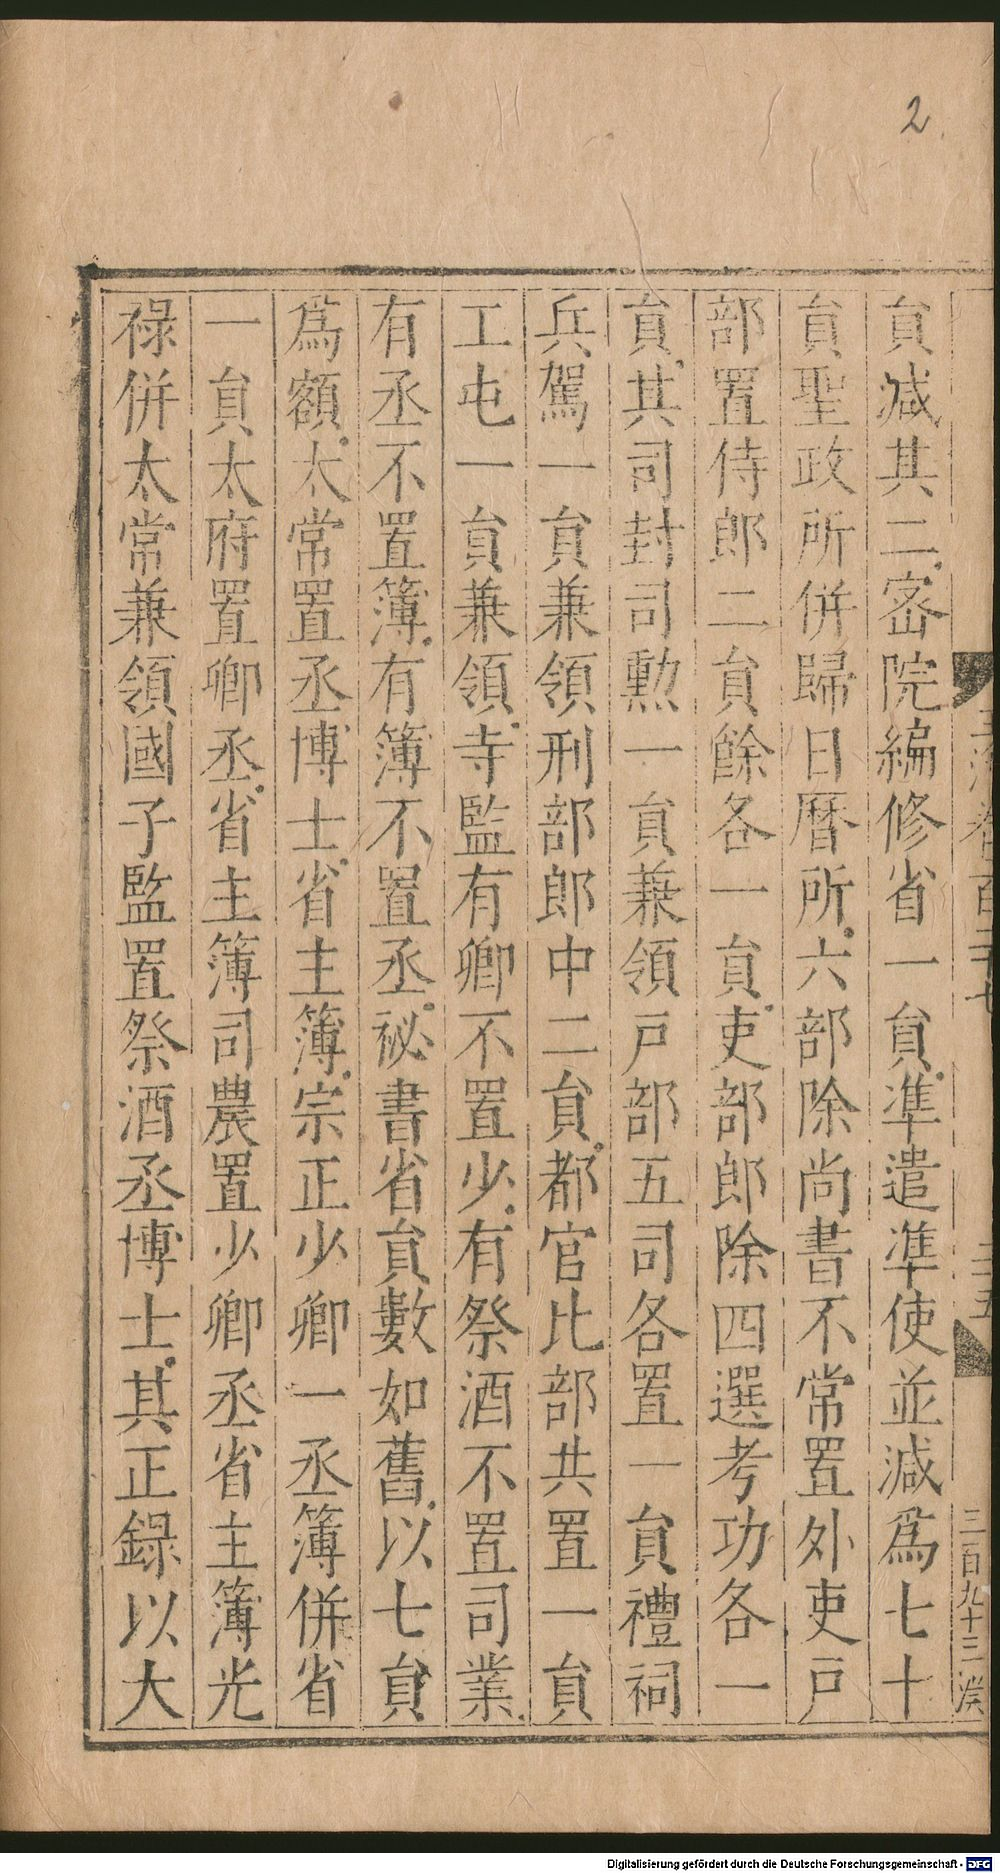 2
員减其二密院編修省一員準遣準使並減爲七十
員聖政所併歸日曆所六部除尚書不常置外吏戸
部置侍郎二員餘各一員吏部郎除四選考功各一
員其司封司勲一員兼領戸部五司各置一員禮祠
兵駕一員兼領刑部郎中二員都官比部共置一員
工屯一員兼領寺監有卿不置少有祭酒不置司業
有丞不置簿有簿不置丞祕書省員數如舊以七員
爲額太常置丞博士省主簿宗正少卿一丞簿併省
一員太府置卿丞省主簿司農置少卿丞省主簿光
祿併太常兼領國子監置祭酒丞博士其正録以大
三百九十三
Digitalisierung gefördert durch die Deutsche Forschungsgemeinschaft - DFG